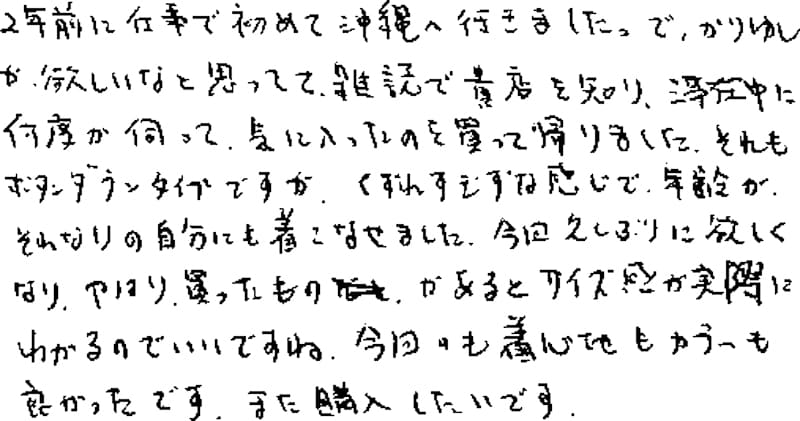 2年前に仕事で初めて沖縄へ行きました。で、かりゆし
が、欲しいなと思ってて、雑誌で貴店を知り、滞在中に
何度か伺って、気に入ったのを買って帰りました。それも
ボタンダウンタイプですが、くずれすぎずな感じで、年齢が、
それなりの自分にも着こなせました。今回久しぶりに欲しく
なり、やはり、買ったもの、があるとサイズ感が実際に
わかるのでいいですね。今回のも着心地もカラーも
良かったです。また購入したいです。